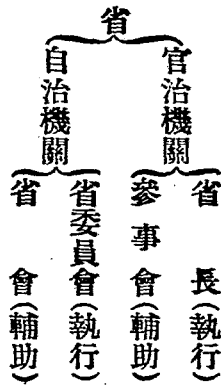 省
官治機關
省長(執行)
參事會(輔助)
自治機關
省委員會(執行)
省會(輔助)